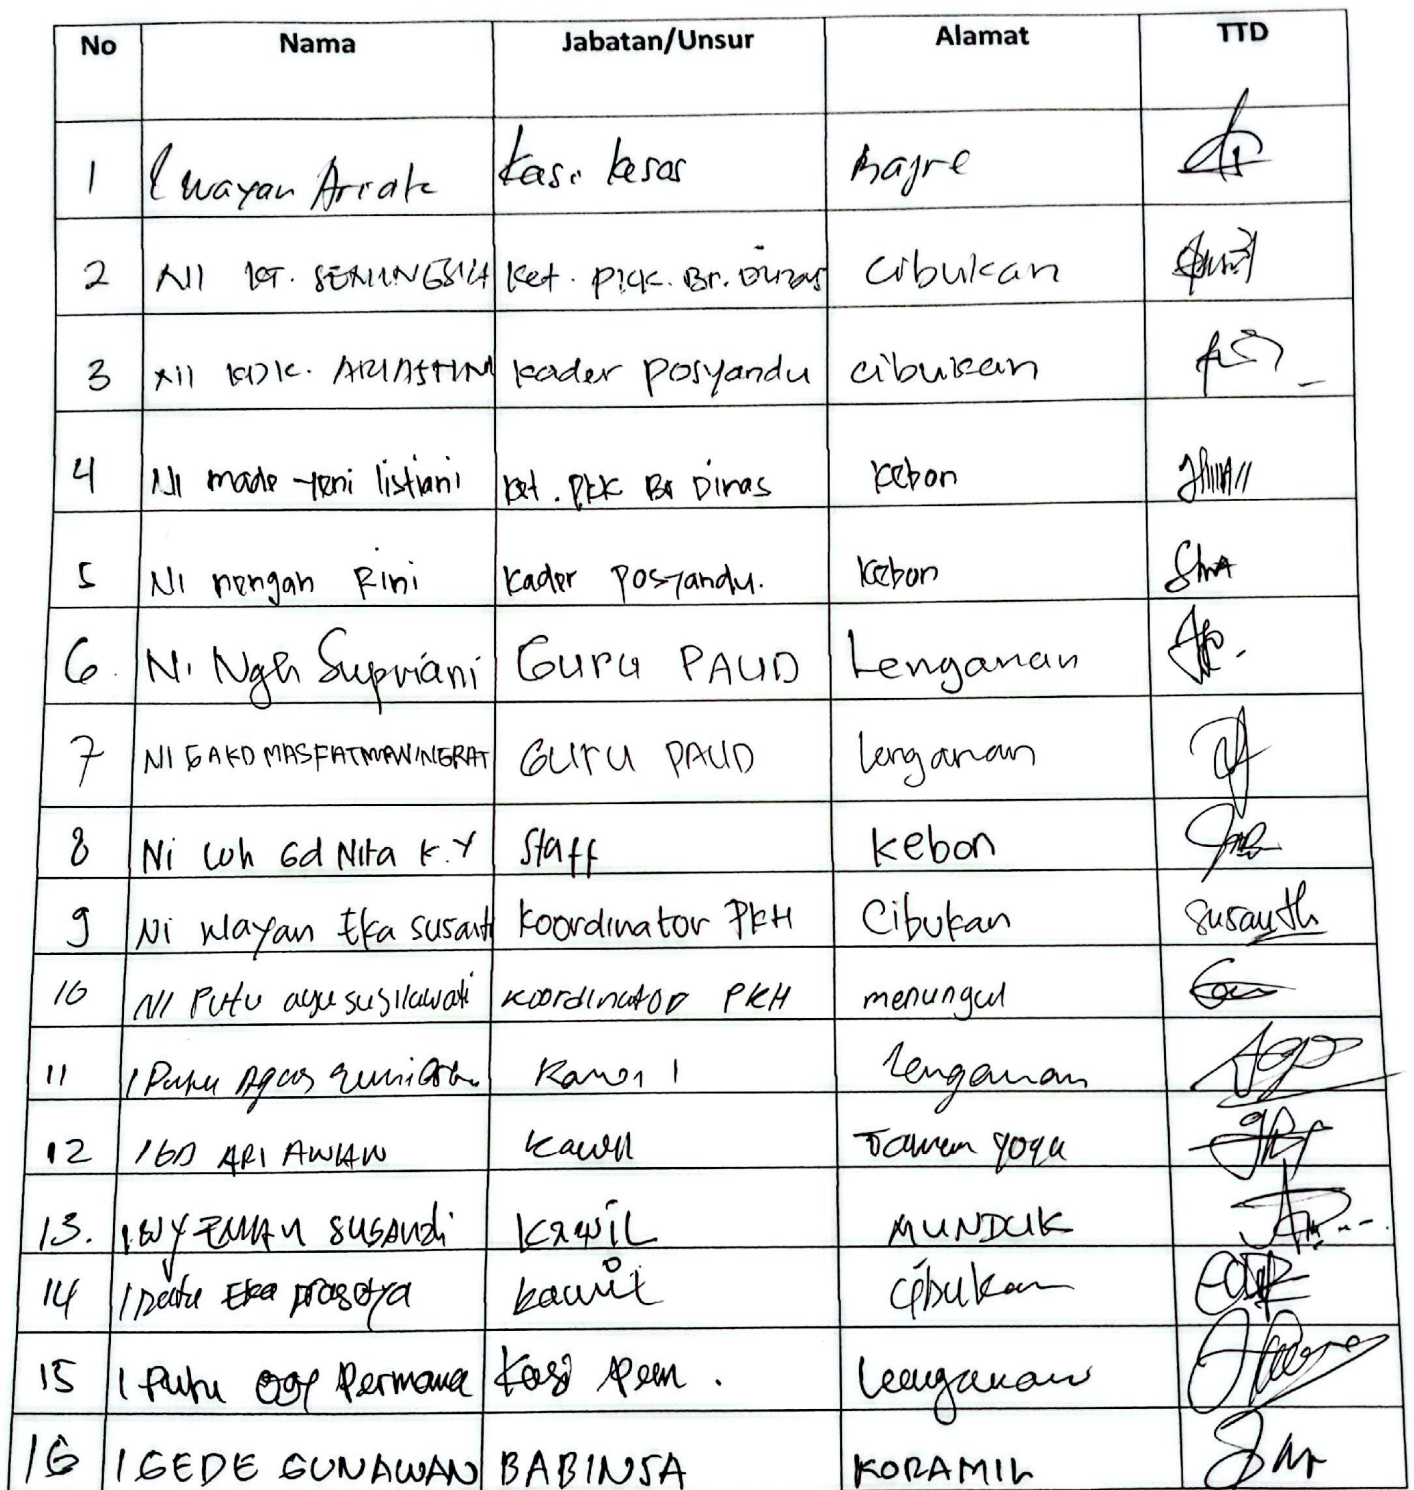 No Nama Jabatan/Unsur Alamat TTD
1 I wayan Kasi kesos Bajre
2 NI KT. SENINGSIH Ket. PKK. Br. Dinas Cibukan
3 NI KDK. ARIASTINI kader posyandu cibukan
4 NI made yeni listiani ket. PKK Br Dinas kebon
5 NI nengah Rini kader posyandu. kebon
6. Ni Ngh Supriani Guru PAUD Lenganan
7 NI GAKD MAS FATMANINGRAT Guru PAUD lenganan
8 Ni Luh Gd Nita K.Y Staff kebon
9 Ni Wayan Eka susanti koordinator PKH Cibukan susanti
10 NI Putu ayu susilawati koordinator PKH menungul
11 I Putu Agus Lenganan
12 I GD ARI AWAN kawil Taman yoga
13. I WY SUSANDI KAWIL MUNDUK
14 I Putu Eka prasetya kawil cibukan
15 I Putu Permana Kasi lenganan
16 I GEDE GUNAWAN BABINSA KORAMIL